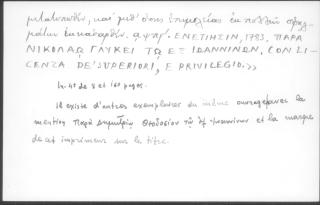 μεταποιηθέν, καὶ μεθ' ὅσης ἐπιμελείας ἐκ πολλῶν σφαλ-
μάτων ἐκκαθαρθέν. αψϟγ'. ΕΝΕΤΙΗΣΙΝ, 1793. ΠΑΡΑ
ΝΙΚΟΛΑΩ ΓΛΥΚΕΙ ΤΩ ΕΞ ΙΩΑΝΝΙΝΩΝ. CON LI-
CENZA DE' SUPERIORI, E PRIVILEGIO.>>
In-4º de 8 et 160 pages.
Il existe d'autres exemplaires du même ouvrage avec la
mention Παρὰ Δημητρίῳ Θεοδοσίου τῷ ἐξ Ἰωαννίνων et la marque
de cet imprimeur sur le titre.